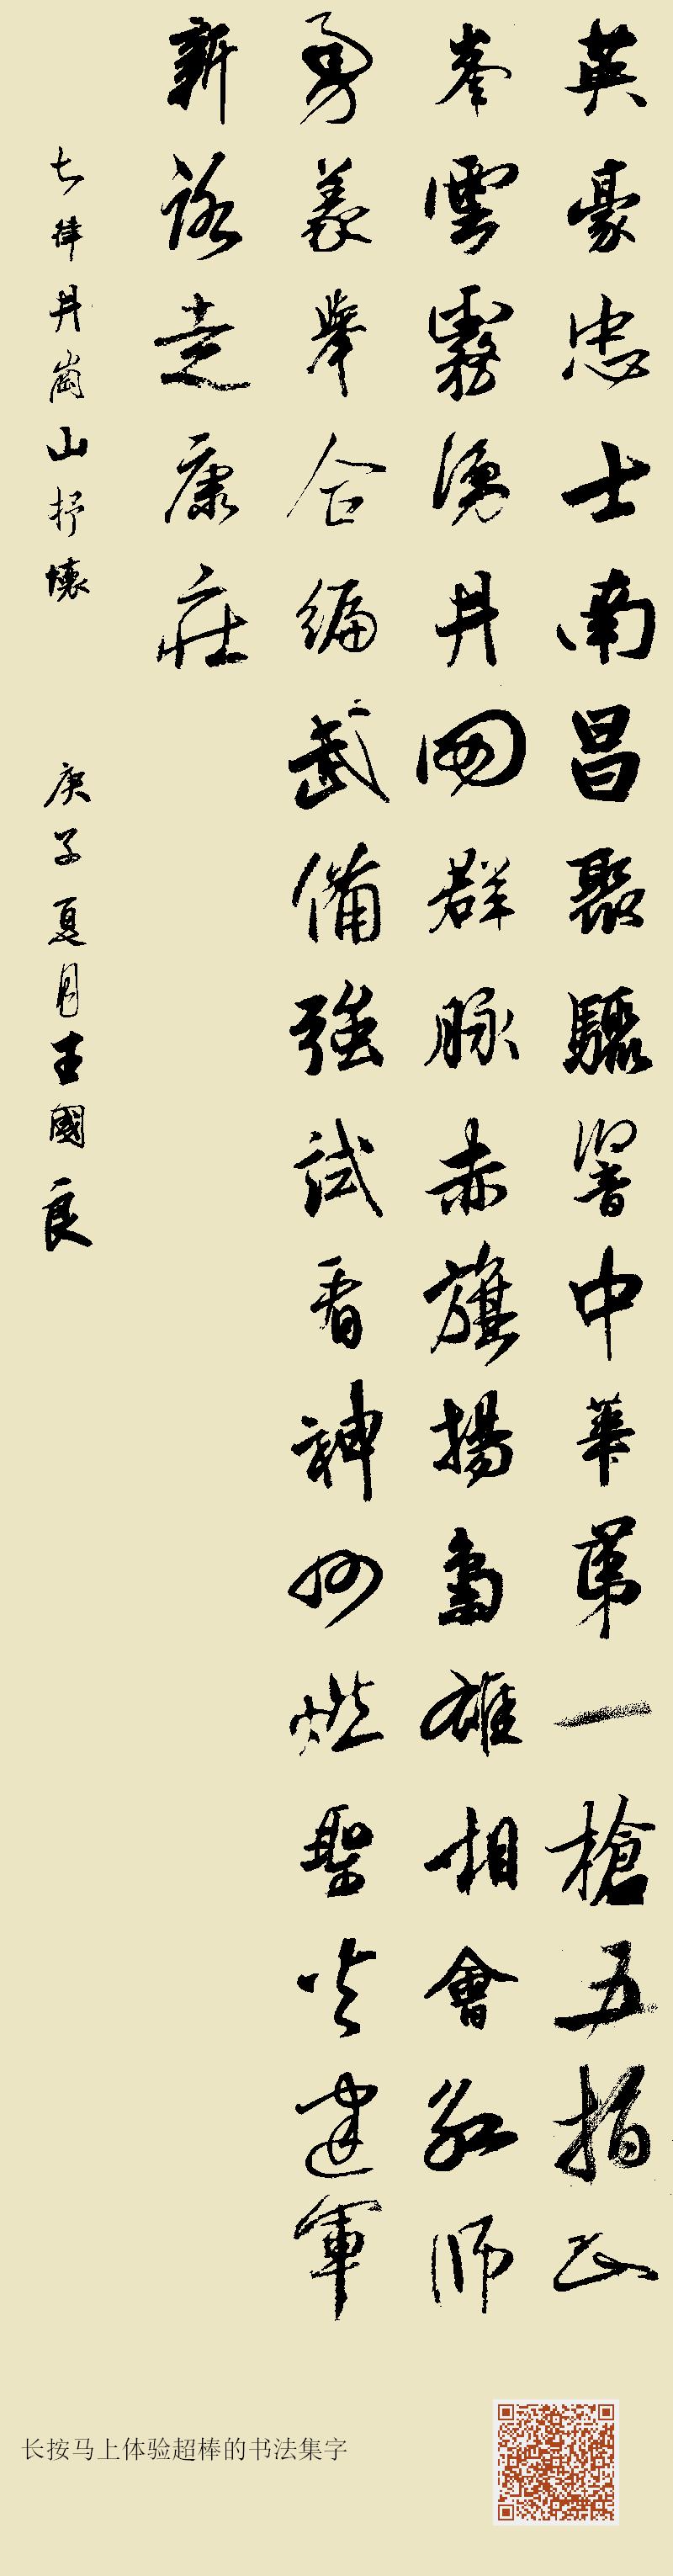 英豪忠士南昌聚驟響中華第一槍五指山
峯雲霧湧井岡群脉赤旗揚梟雄相會紅師
勇義舉合編武備強試看神州燃聖火建軍
新路走康莊
七律井崗山抒懷 庚子夏月王國良
长按马上体验超棒的书法集字